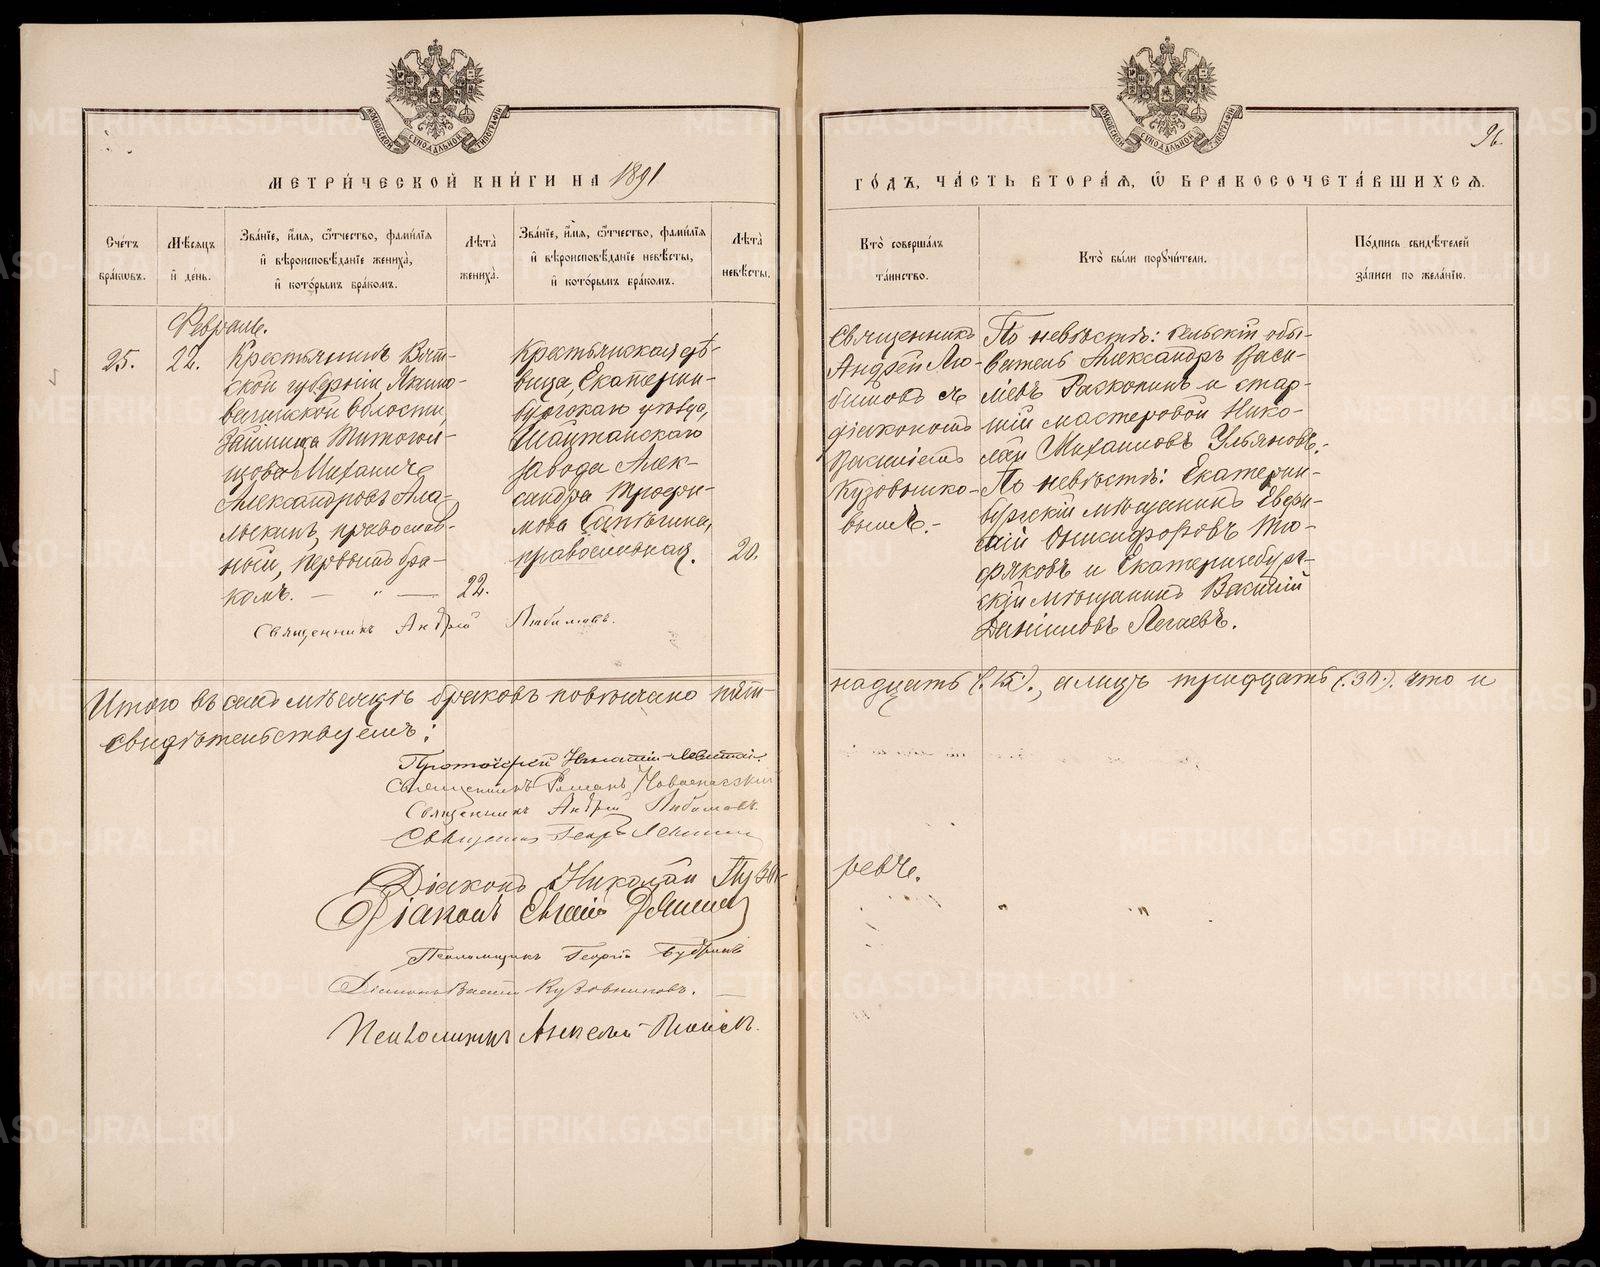 МОСКОВСКОЙ СУНОДАЛЬНОЙ ТИПОГРАФІИ
МЕТРИ́ЧЕСКОЙ КНИ́ГИ НА 1891
Сче́тъ бра́ковъ.
Мѣ́сяцъ и҆ де́нь.
Зва́нїе, и҆́мѧ, ѻ҆́тчество, фами́лїѧ и҆ вѣроисповѣ́данїе жениха̀, и҆ кото́рымъ бра́комъ.
Лѣта̀ жениха̀.
Зва́нїе, и҆́мѧ, ѻ҆́тчество, фами́лїѧ и҆ вѣроисповѣ́данїе невѣ́сты, и҆ кото́рымъ бра́комъ.
Лѣта̀ невѣ́сты.
Февраль.
25.
22.
Крестьянинъ Вят-
ской губерніи,
волости,
Александровъ
православ-
ный, первымъ бра-
комъ. — " —
22.
Крестьянская дѣ-
вица, Екатерин-
бургскаго уѣзда,
Шайтанскаго
завода Алек-
сандра Трофи-
мова
православная.
20.
Священникъ Андрей Любимовъ.
Итого въ семъ мѣсяцѣ браковъ повѣнчано пят-
свидѣтельствуемъ:
Протоіерей Игнатій Левитскій
Священникъ Романъ
Священникъ Андрей Любимовъ.
Священникъ Георгій
Діаконъ Николай Пузы-
Діаконъ Евгеній
Псаломщикъ Георгій
Діаконъ Василій Кузовниковъ.
Псаломщикъ Алексѣй
МОСКОВСКОЙ СУНОДАЛЬНОЙ ТИПОГРАФІИ
96.
ГО́ДЪ, ЧА́СТЬ ВТОРА́Ѧ, Ѽ БРАКОСОЧЕТА́ВШИХСѦ.
Кто̀ соверша́лъ та́инство.
Кто̀ бы́ли порꙋчи́тели.
По́дпись свидѣ́телей за́писи по жела́нїю.
Священникъ
Андрей Лю-
бимовъ съ
діакономъ
Василіемъ
Кузовнико-
вымъ.-
По невѣстѣ: Сельскій обы-
ватель Александръ Васи-
льевъ Раскопинъ и стар-
шій мастеровой Нико-
лай Михаиловъ Ульяновъ.
По невѣстѣ: Екатерин-
бургскій мѣщанинъ Евфи-
мій Никифоровъ
и Екатеринбург-
скій мѣщанинъ Василій
Даниловъ Легаевъ.
надцать (15)., а лицъ тридцать (30). что и
ревъ.
METRIKI.GASO-URAL.RU